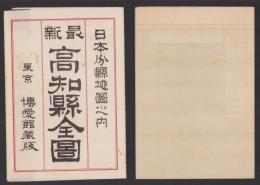 日本分縣地圖之内
最新
高知縣全圖
東京 博愛館藏版